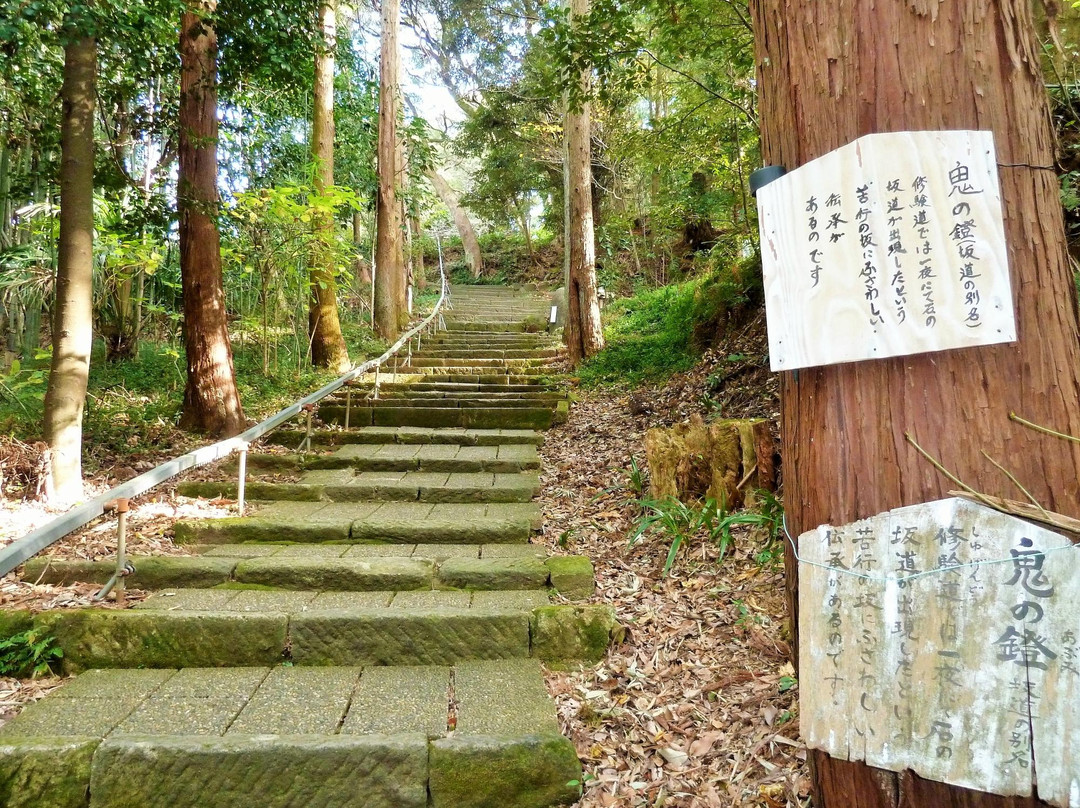 鬼の鐙(坂道の別名)
修験道では一夜にて石の
坂道が出現したという
苦行の坂にふさわしい
伝承が
あるのです
鬼の鐙 坂道の別名
あぶみ
しゅげんどう
修験道 一夜 石の
坂道が出現したという
苦行の坂にふさわしい
伝承があるのです。